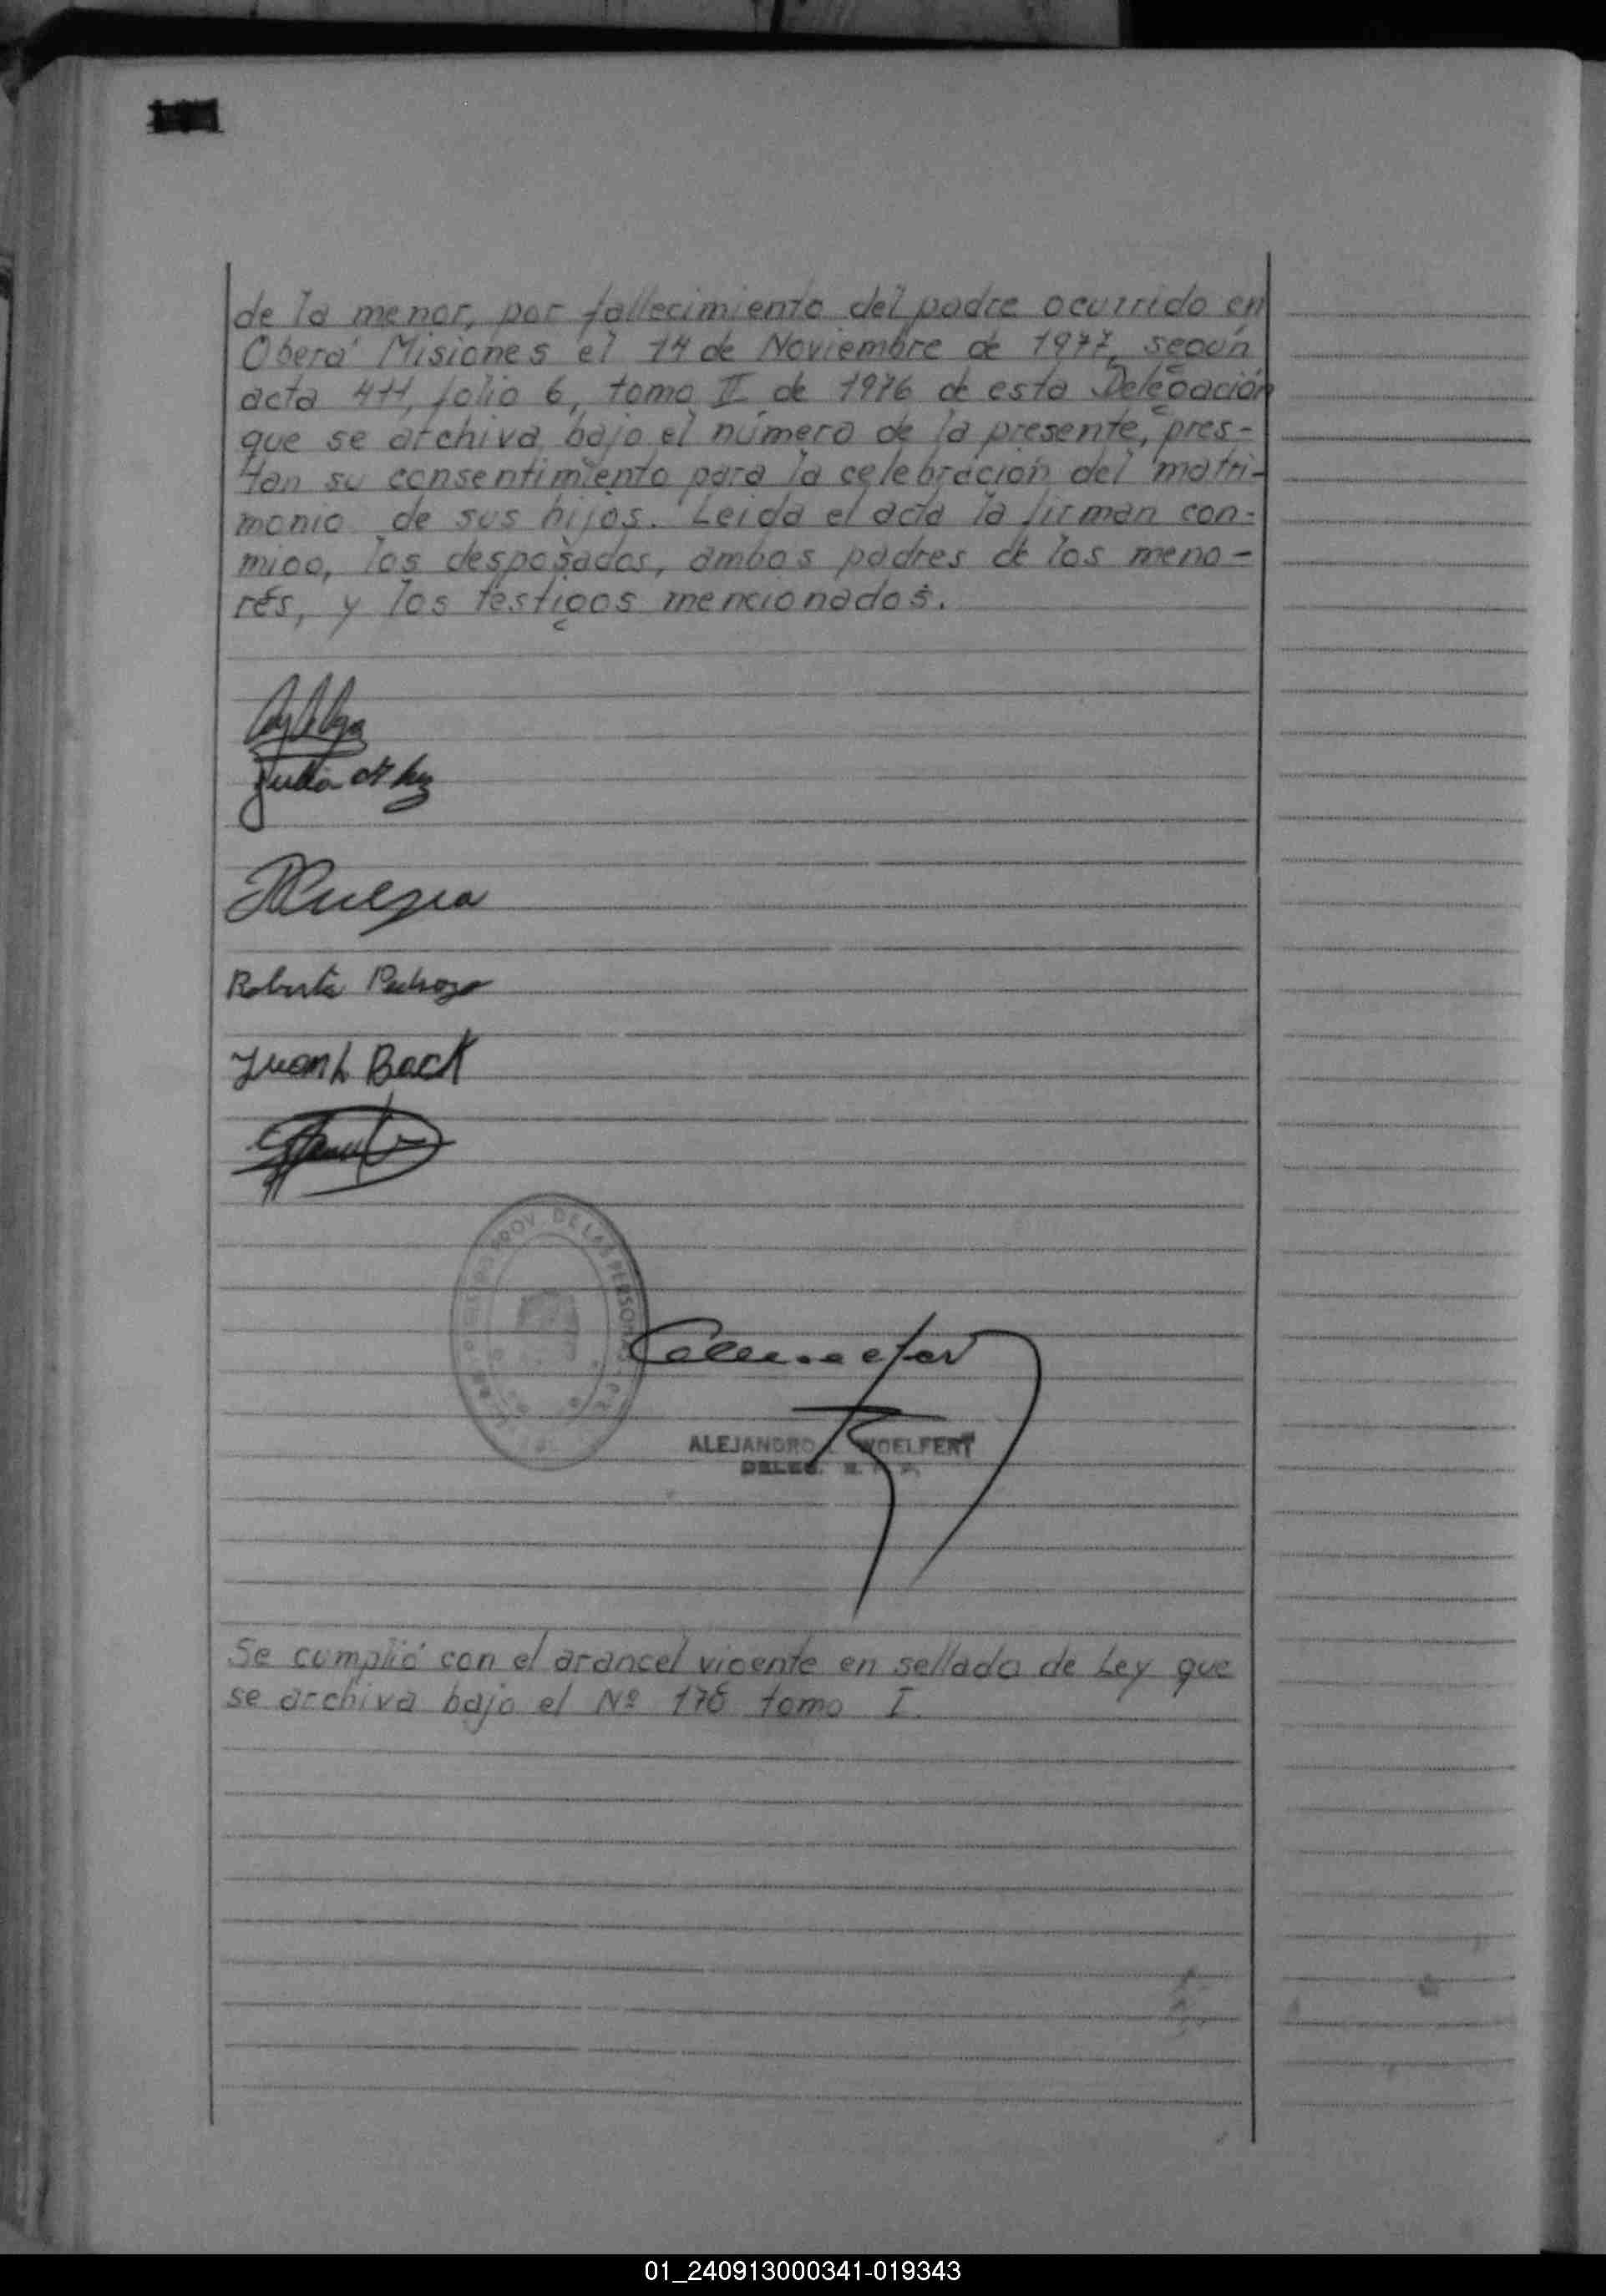 de la menor, por fallecimiento del padre ocurrido en
Oberá Misiones el 14 de Noviembre de 1977, según
acta 411, folio 6, tomo II de 1976 de esta Delegación
que se archiva bajo el número de la presente, pres-
tan su consentimiento para la celebración del matri-
monio de sus hijos. Leida el acta la firman con-
migo, los desposados, ambos padres de los meno-
res, y los testigos mencionados.
Roberto Pedrozo
Juan L Back
PROV. DE LAS PERSONAS
ALEJANDRO WOELFERT
DELEG.
Se cumplió con el arancel vigente en sellado de Ley que
se archiva bajo el Nº 176 tomo I.
01_240913000341-019343